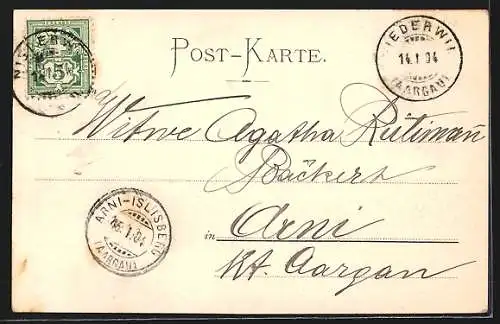 POST-KARTE.
NIEDERWIL
(AARGAU)
14.I.04
5
Witwe Agatha Rütimañ
Bäckert
in Arni
Kt. Aargau
ARNI-ISLISBERG
(AARGAU)
15.I.04